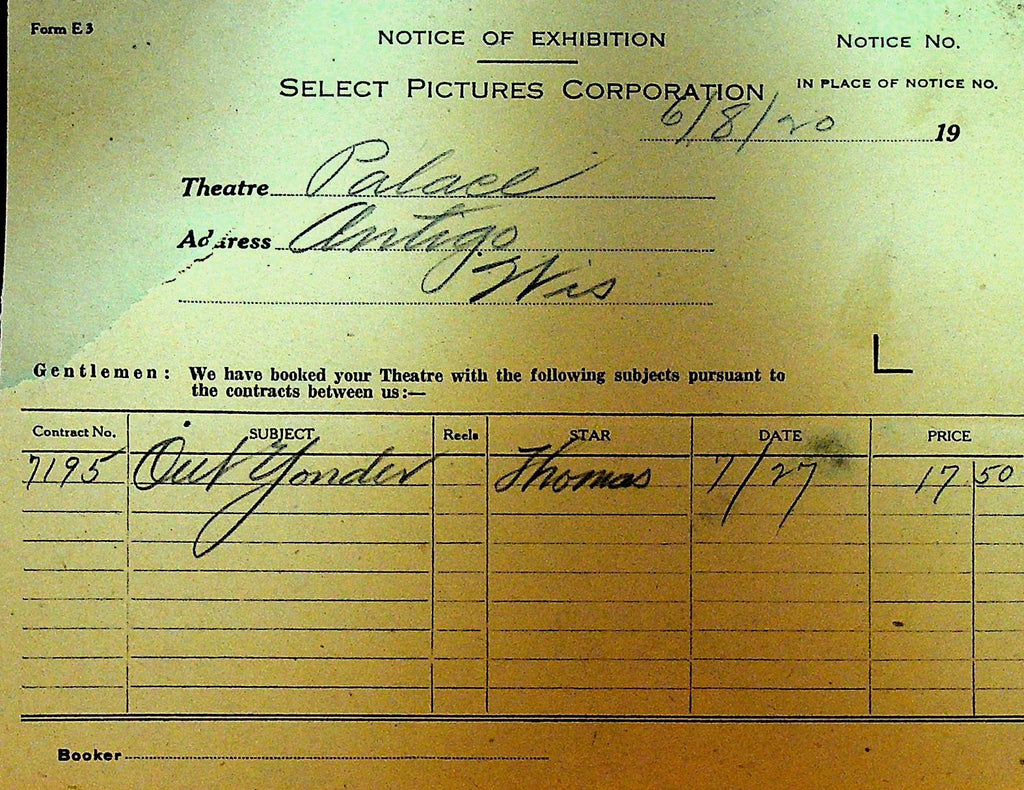 Form E3
NOTICE OF EXHIBITION
NOTICE NO.
SELECT PICTURES CORPORATION
IN PLACE OF NOTICE NO.
6/8/20 19
Theatre Palace
Address Antigo
Wis
Gentlemen: We have booked your Theatre with the following subjects pursuant to
the contracts between us:—
Contract No. SUBJECT Reels STAR DATE PRICE
7195 Out Yonder Thomas 7/27 17 50
Booker